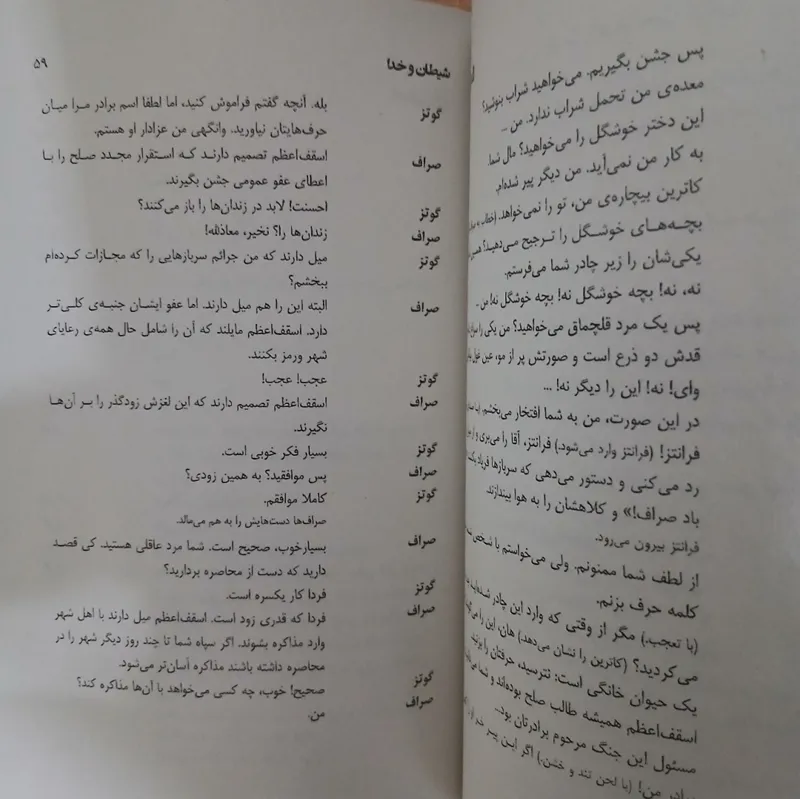 پس جشن بگیریم. می‌خواهید شراب بنوشید؟
معده‌ی من تحمل شراب ندارد. من ...
این دختر خوشگل را می‌خواهید؟ مال شما.
به کار من نمی‌آید. من دیگر پیر شده‌ام.
کاترین بیچاره‌ی من، تو را نمی‌خواهد. (خطاب به
بچه‌های خوشگل را ترجیح می‌دهید؟
یکی‌شان را زیر چادر شما می‌فرستم.
نه، نه! بچه خوشگل نه! بچه خوشگل نه! من ...
پس یک مرد قلچماق می‌خواهید؟ من یکی را
قدش دو ذرع است و صورتش پر از مو، عین غول
وای! نه! این را دیگر نه! ...
در این صورت، من به شما افتخار می‌بخشم.
فرانتز! (فرانتز وارد می‌شود.) فرانتز، آقا را می‌بری و از
رد می‌کنی و دستور می‌دهی که سربازها فریاد
باد صراف!» و کلاهشان را به هوا بیندازند.
فرانتز بیرون می‌رود.
از لطف شما ممنونم. ولی می‌خواستم با شخص
کلمه حرف بزنم.
(با تعجب.) مگر از وقتی که وارد این چادر شده‌اید
می‌کردید؟ (کاترین را نشان می‌دهد) هان، این را می‌گویید
یک حیوان خانگی است: نترسید، حرفتان را بزنید.
اسقف‌اعظم همیشه طالب صلح بوده‌اند و شما
مسئول این جنگ مرحوم برادرتان بود...
برادر من! (با لحن تند و خشن.) اگر این پیر خر
شیطان و خدا ۵۹
گوتز بله. آنچه گفتم فراموش کنید، اما لطفا اسم برادر مرا میان
حرف‌هایتان نیاورید. وانگهی من عزادار او هستم.
صراف اسقف‌اعظم تصمیم دارند که استقرار مجدد صلح را با
اعطای عفو عمومی جشن بگیرند.
گوتز احسنت! لابد در زندان‌ها را باز می‌کنند؟
صراف زندان‌ها را؟ نخیر، معاذالله!
گوتز میل دارند که من جرائم سربازهایی را که مجازات کرده‌ام
ببخشم؟
صراف البته این را هم میل دارند. اما عفو ایشان جنبه‌ی کلی‌تر
دارد. اسقف‌اعظم مایلند که آن را شامل حال همه‌ی رعایای
شهر ورمز بکنند.
گوتز عجب! عجب!
صراف اسقف‌اعظم تصمیم دارند که این لغزش زودگذر را بر آن‌ها
نگیرند.
گوتز بسیار فکر خوبی است.
صراف پس موافقید؟ به همین زودی؟
گوتز کاملا موافقم.
صراف‌ها دست‌هایش را به هم می‌مالد.
صراف بسیارخوب، صحیح است. شما مرد عاقلی هستید. کی قصد
دارید که دست از محاصره بردارید؟
گوتز فردا کار یکسره است.
صراف فردا که قدری زود است. اسقف‌اعظم میل دارند با اهل شهر
وارد مذاکره بشوند. اگر سپاه شما تا چند روز دیگر شهر را در
محاصره داشته باشند مذاکره آسان‌تر می‌شود.
گوتز صحیح! خوب، چه کسی می‌خواهد با آن‌ها مذاکره کند؟
صراف من.